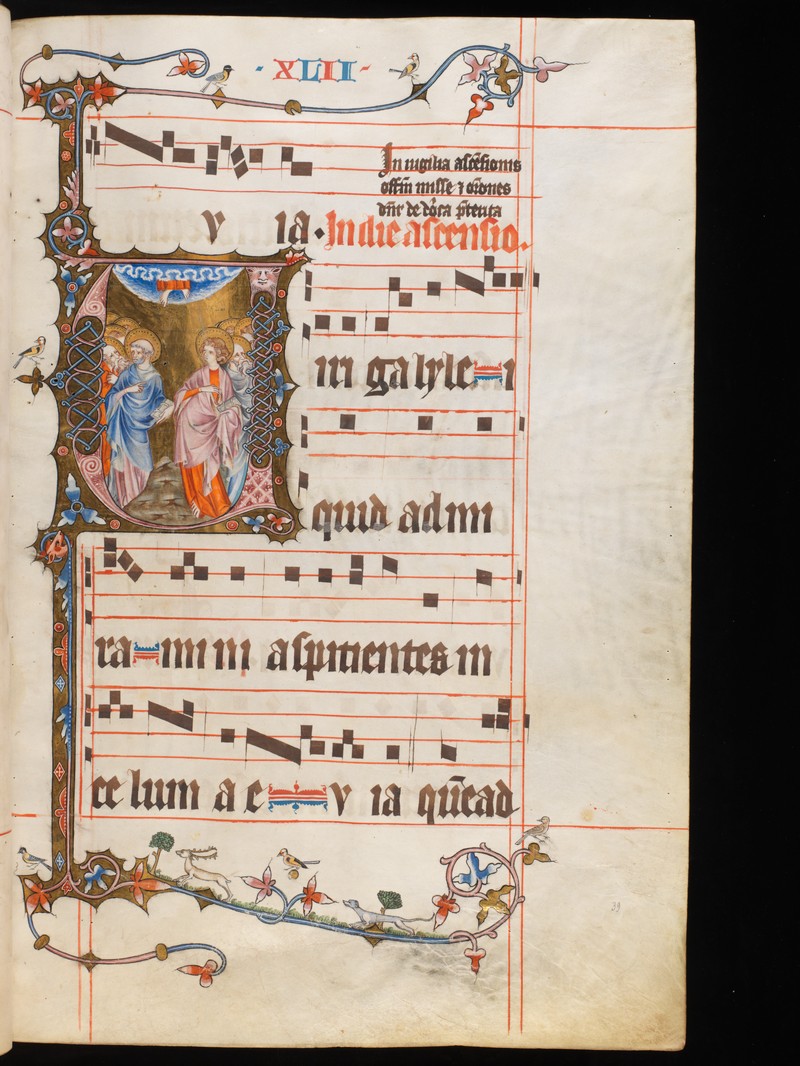 · XLII ·
In vigilia ascēsionis
offm̄ misse ⁊ or̄ones
dn̄r de
v ia · In die ascensio.
iri galyle i
quid admi
ra mini aspitientes in
ce lum a e v ia quēad
39